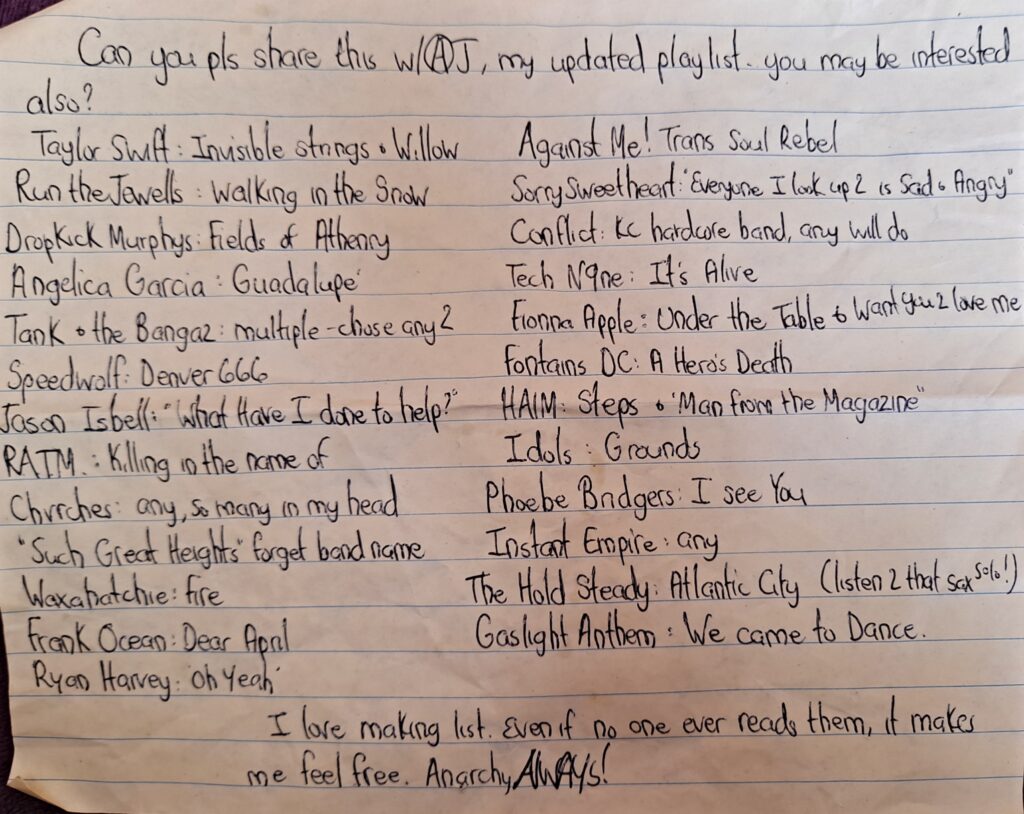 Can you pls share this w/ⒶJ, my updated playlist. you may be interested
also?
Taylor Swift: Invisible strings & Willow
Run the Jewells: Walking in the Snow
Dropkick Murphys: Fields of Athenry
Angelica Garcia: Guadalupe'
Tank & the Bangaz: multiple-chose any 2
Speedwolf: Denver 666
Jason Isbell: "What Have I done to help?"
RATM.: Killing in the name of
Chvrches: any, so many in my head
"Such Great Heights" forget band name
Waxahatchie: fire
Frank Ocean: Dear April
Ryan Harvey: 'oh Yeah'
Against Me! Trans Soul Rebel
Sorry Sweetheart: "Everyone I look up 2 is Sad & Angry"
Conflict: KC hardcore band, any will do
Tech N9ne: It's Alive
Fionna Apple: Under the Table & Want you 2 love me
Fontains DC: A Hero's Death
HAIM: Steps & "Man from the Magazine"
Idols: Grounds
Phoebe Bridgers: I see You
Instant Empire: any
The Hold Steady: Atlantic City (listen 2 that sax solo!)
Gaslight Anthem: We came to Dance.
I love making list. Even if no one ever reads them, it makes
me feel free. Anarchy, ALWAYS!